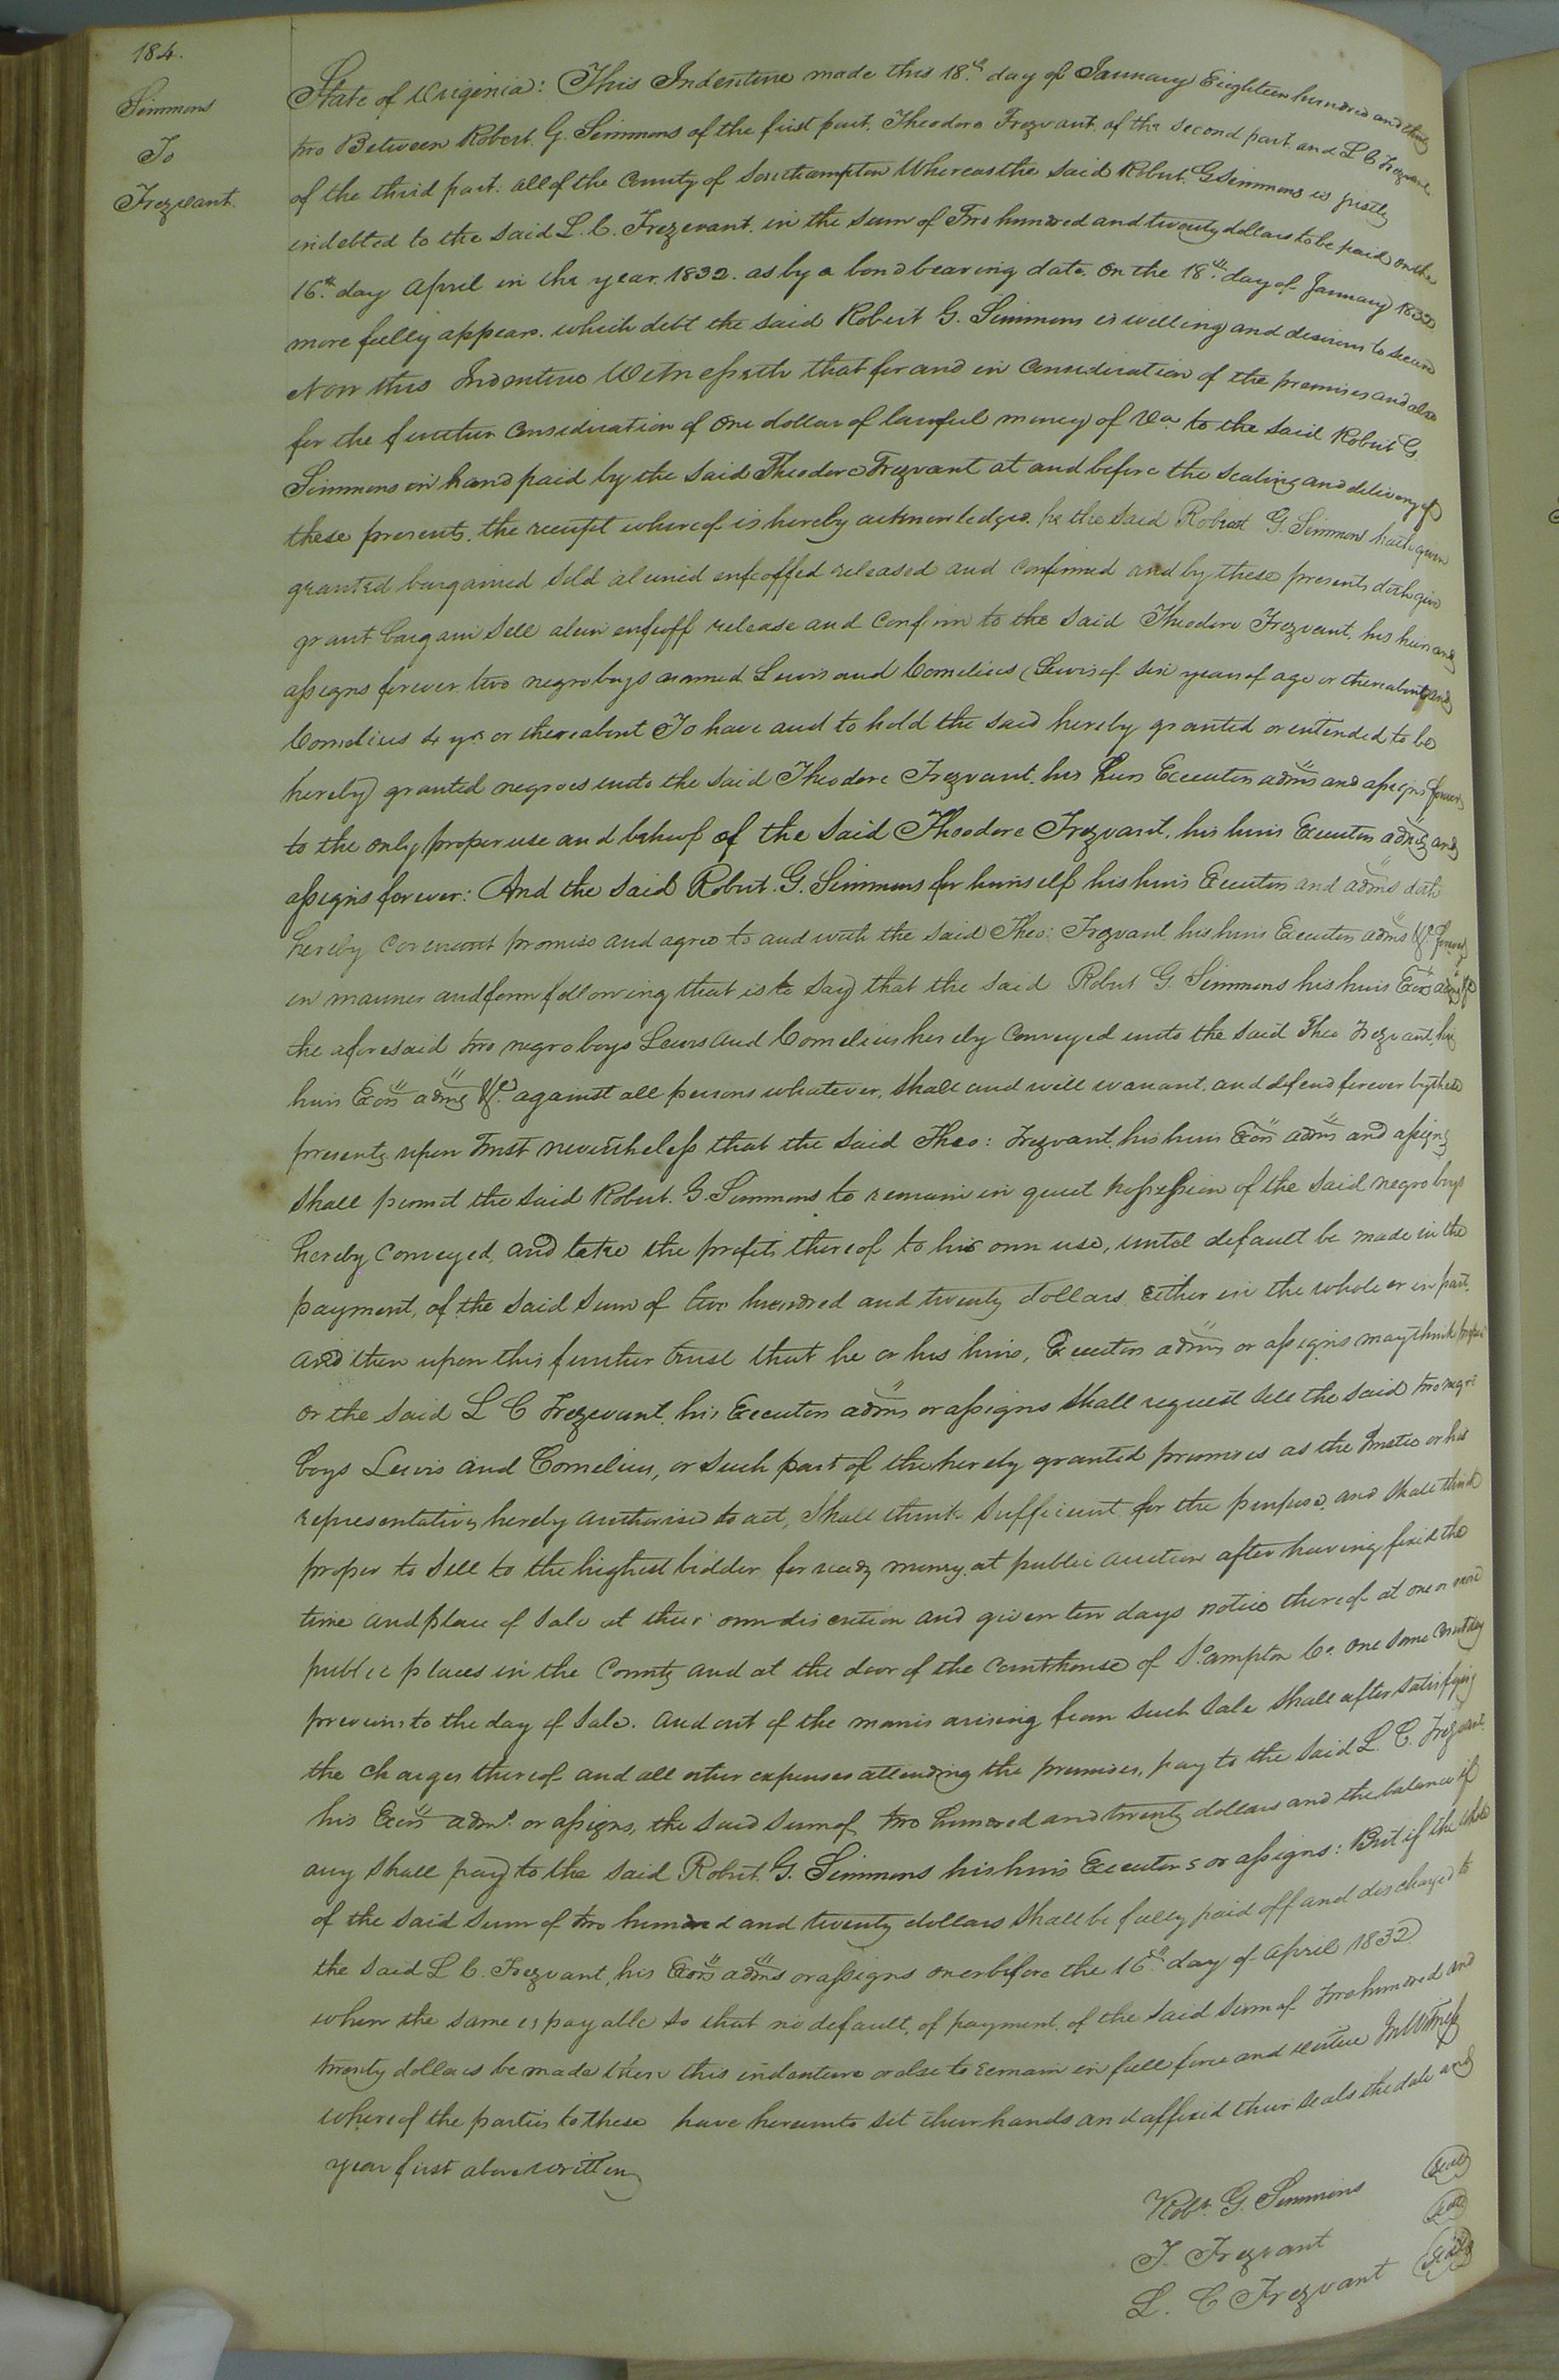 184.
Simmons
To
Trezvant.
State of Virginia: This Indenture made this 18th day of January Eighteen hundred and thirty
two Between Robert G. Simmons of the first part, Theodore Trezvant of the second part and L C Trezvant
of the third part: all of the County of Southampton Whereas the said Robert G Simmons is justly
indebted to the said L. C. Trezevant in the sum of Two hundred and twenty dollars to be paid on the
16th day April in the year 1832. as by a bond bearing date on the 18th day of January 1832
more fully appears. which debt the said Robert G. Simmons is willing and desirous to secure
Now this Indenture Witnesseth that for and in Consideration of the premises and also
for the further Consideration of One dollar of lawful money of Va to the said Robert G.
Simmons in hand paid by the said Theodore Trezvant at and before the sealing and delivery of
these presents, the receipt whereof is hereby acknowledged. he the said Robert G. Simmons hath given
granted bargained sold aliened enfeoffed released and confirmed and by these presents doth give
grant bargain sell alien enfeoff release and confirm to the said Theodore Trezvant, his heirs and
assigns forever two negro boys named Lewis and Cornelius (Lewis of six years of age or thereabouts and
Cornelius 4 yrs or thereabout To have and to hold the said hereby granted or intended to be
hereby granted negroes unto the said Theodore Trezvant, his heirs Executors adms and assigns forever
to the only proper use and behoof of the said Theodore Trezvant, his heirs Executors adms and
assigns forever: And the said Robert. G. Simmons for himself his heirs Executors and adms doth
hereby covenant promise and agree to and with the said Theo: Trezvant his heirs Executors adms &c forever
in manner and form following that is to say that the said Robert G. Simmons his heirs Exors adms &c
the aforesaid two negro boys Lewis and Cornelius hereby conveyed unto the said Theo Trezvant, his
heirs Exors adms &c. against all persons whatever, shall and will warrant and defend forever by these
presents, upon trust nevertheless that the said Theo: Trezvant, his heirs Exors adms and assigns
shall permit the said Robert. G. Simmons to remain in quiet possession of the said negro boys
hereby conveyed, and take the profits thereof to his own use, until default be made in the
payment, of the said sum of two hundred and twenty dollars either in the whole or in part.
and then upon this further trust that he or his heirs, Executors adms or assigns may think proper
or the said L C Trezevant, his Executors adms or assigns shall request sell the said two negro
boys Lewis and Cornelius, or such part of the hereby granted premises as the trustee or his
representatives hereby authorised to act, shall think sufficient for the purpose, and shall think
proper to sell to the highest bidder for ready money at public auction after having fixed the
time and place of sale at their own discretion and given ten days notice thereof at one or more
public places in the County and at the door of the courthouse of So.ampton Co. one some Court day
previous to the day of sale. and out of the monies arising from such sale shall after satisfying
the charges thereof and all other expenses attending the premises, pay to the said L. C. Trezvant.
his Exors adms or assigns, the said sum of two hundred and twenty dollars and the balance if
any shall pay to the said Robert. G. Simmons his heirs Executors or assigns: But if the whole
of the said sum of two hundred and twenty dollars shall be fully paid off and discharged to
the said L C. Trezvant, his Exors adms or assigns on or before the 16th day of April 1832
when the same is payable so that no default, of payment of the said sum of Two hundred and
twenty dollars be made then this indenture or else to remain in full force and virtue In Witness
whereof the parties to these have hereunto set their hands and affixed their seals the date and
year first above written
Robt. G. Simmons seal
T. Trezvant seal
L. C Trezvant seal